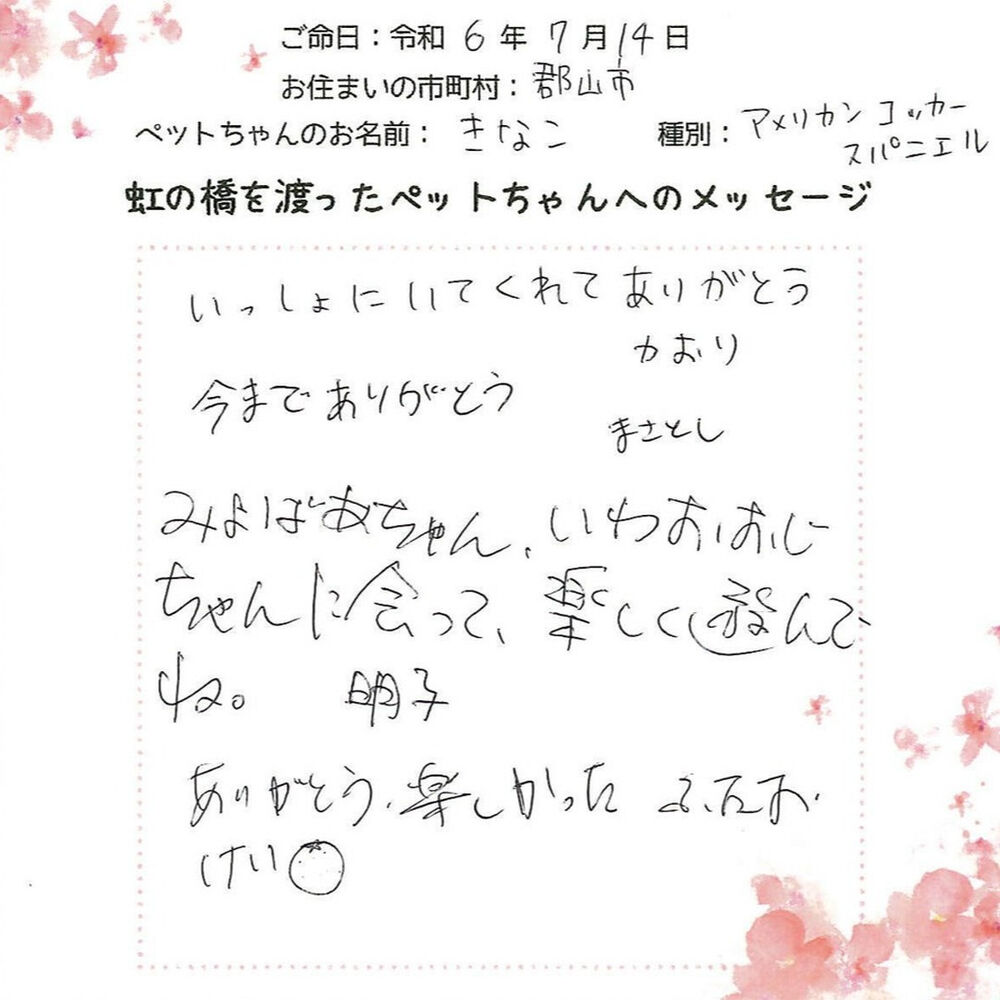 ご命日：令和 6 年 7 月 14 日
お住まいの市町村：郡山市
ペットちゃんのお名前： きなこ 種別：アメリカン コッカー
スパニエル
虹の橋を渡ったペットちゃんへのメッセージ
いっしょにいてくれてありがとう
かおり
今までありがとう
まさとし
みよばあちゃん、いわおおじ
ちゃんに会って、楽しく遊んで
ね。 明子
ありがとう、楽しかった
けい